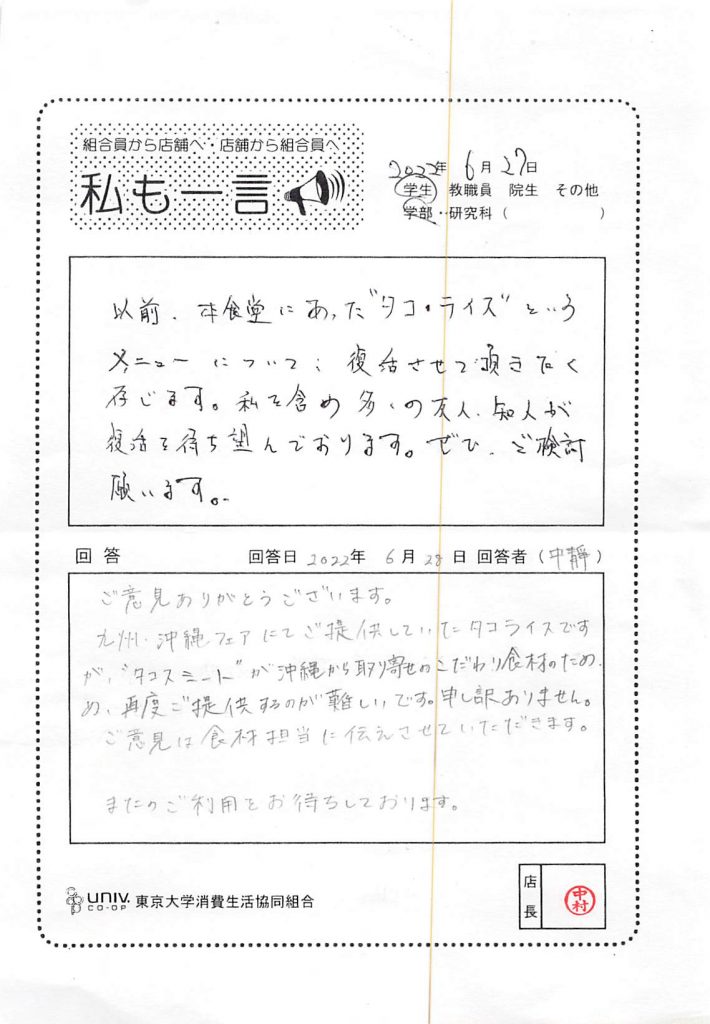 組合員から店舗へ・店舗から組合員へ
私も一言
2022年 6月 27日
学生 教職員 院生 その他
学部・研究科（ ）
以前、本食堂にあった"タコ・ライス"という
メニューについて、復活させて頂きたく
存じます。私を含め多くの友人、知人が
復活を待ち望んでおります。ぜひ、ご検討
願います。
回答 回答日 2022年 6月 28日 回答者（中靜）
ご意見ありがとうございます。
九州・沖縄フェアにてご提供していたタコライスです
が、"タコスミート"が沖縄から取り寄せのこだわり食材のため、
め、再度ご提供するのが難しいです。申し訳ありません。
ご意見は食材担当に伝えさせていただきます。
またのご利用をお待ちしております。
UNIV. CO-OP 東京大学消費生活協同組合
店長 中村